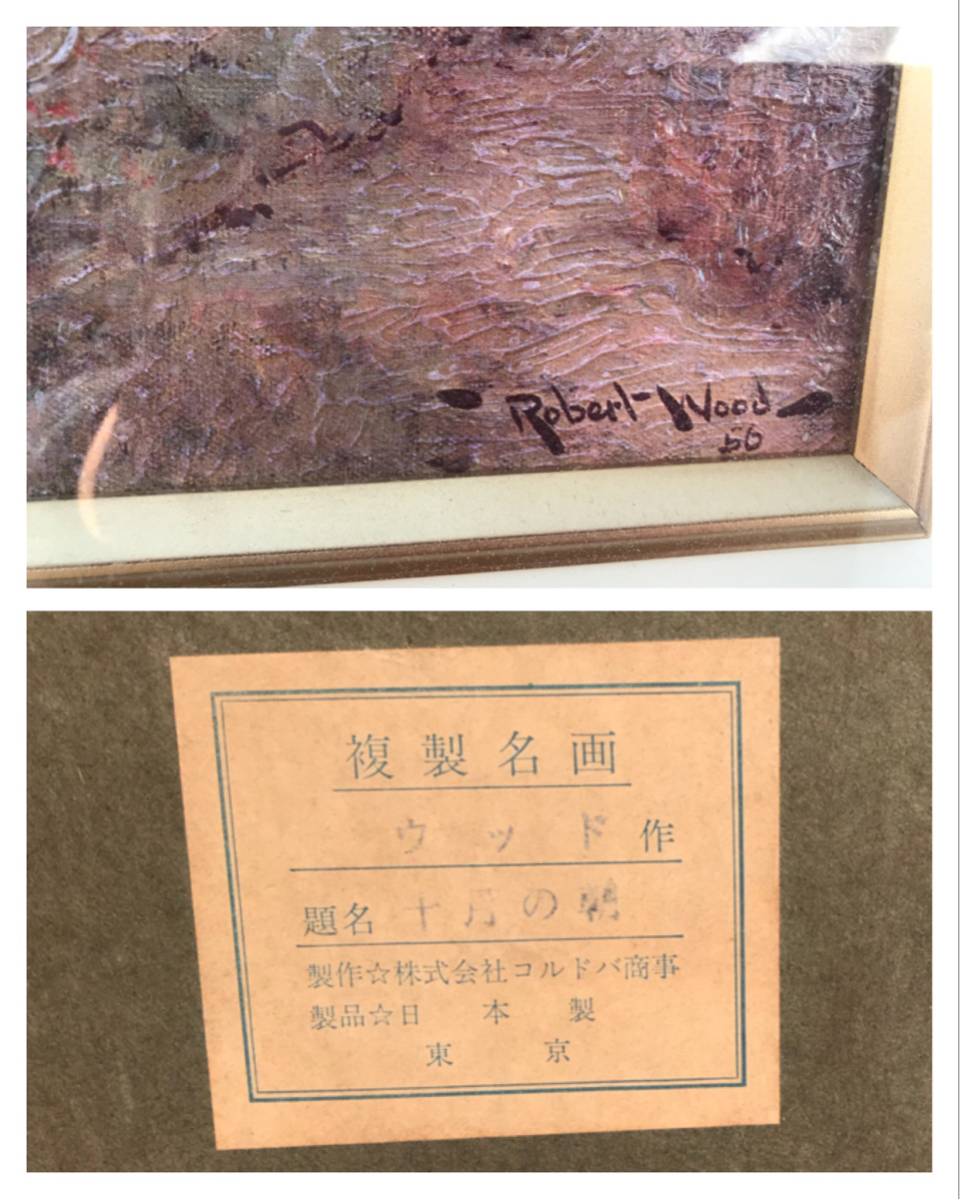 Robert Wood
56
複製名画
ウッド作
題名 十月の朝
製作☆株式会社コルドバ商事
製品☆日本製
東京